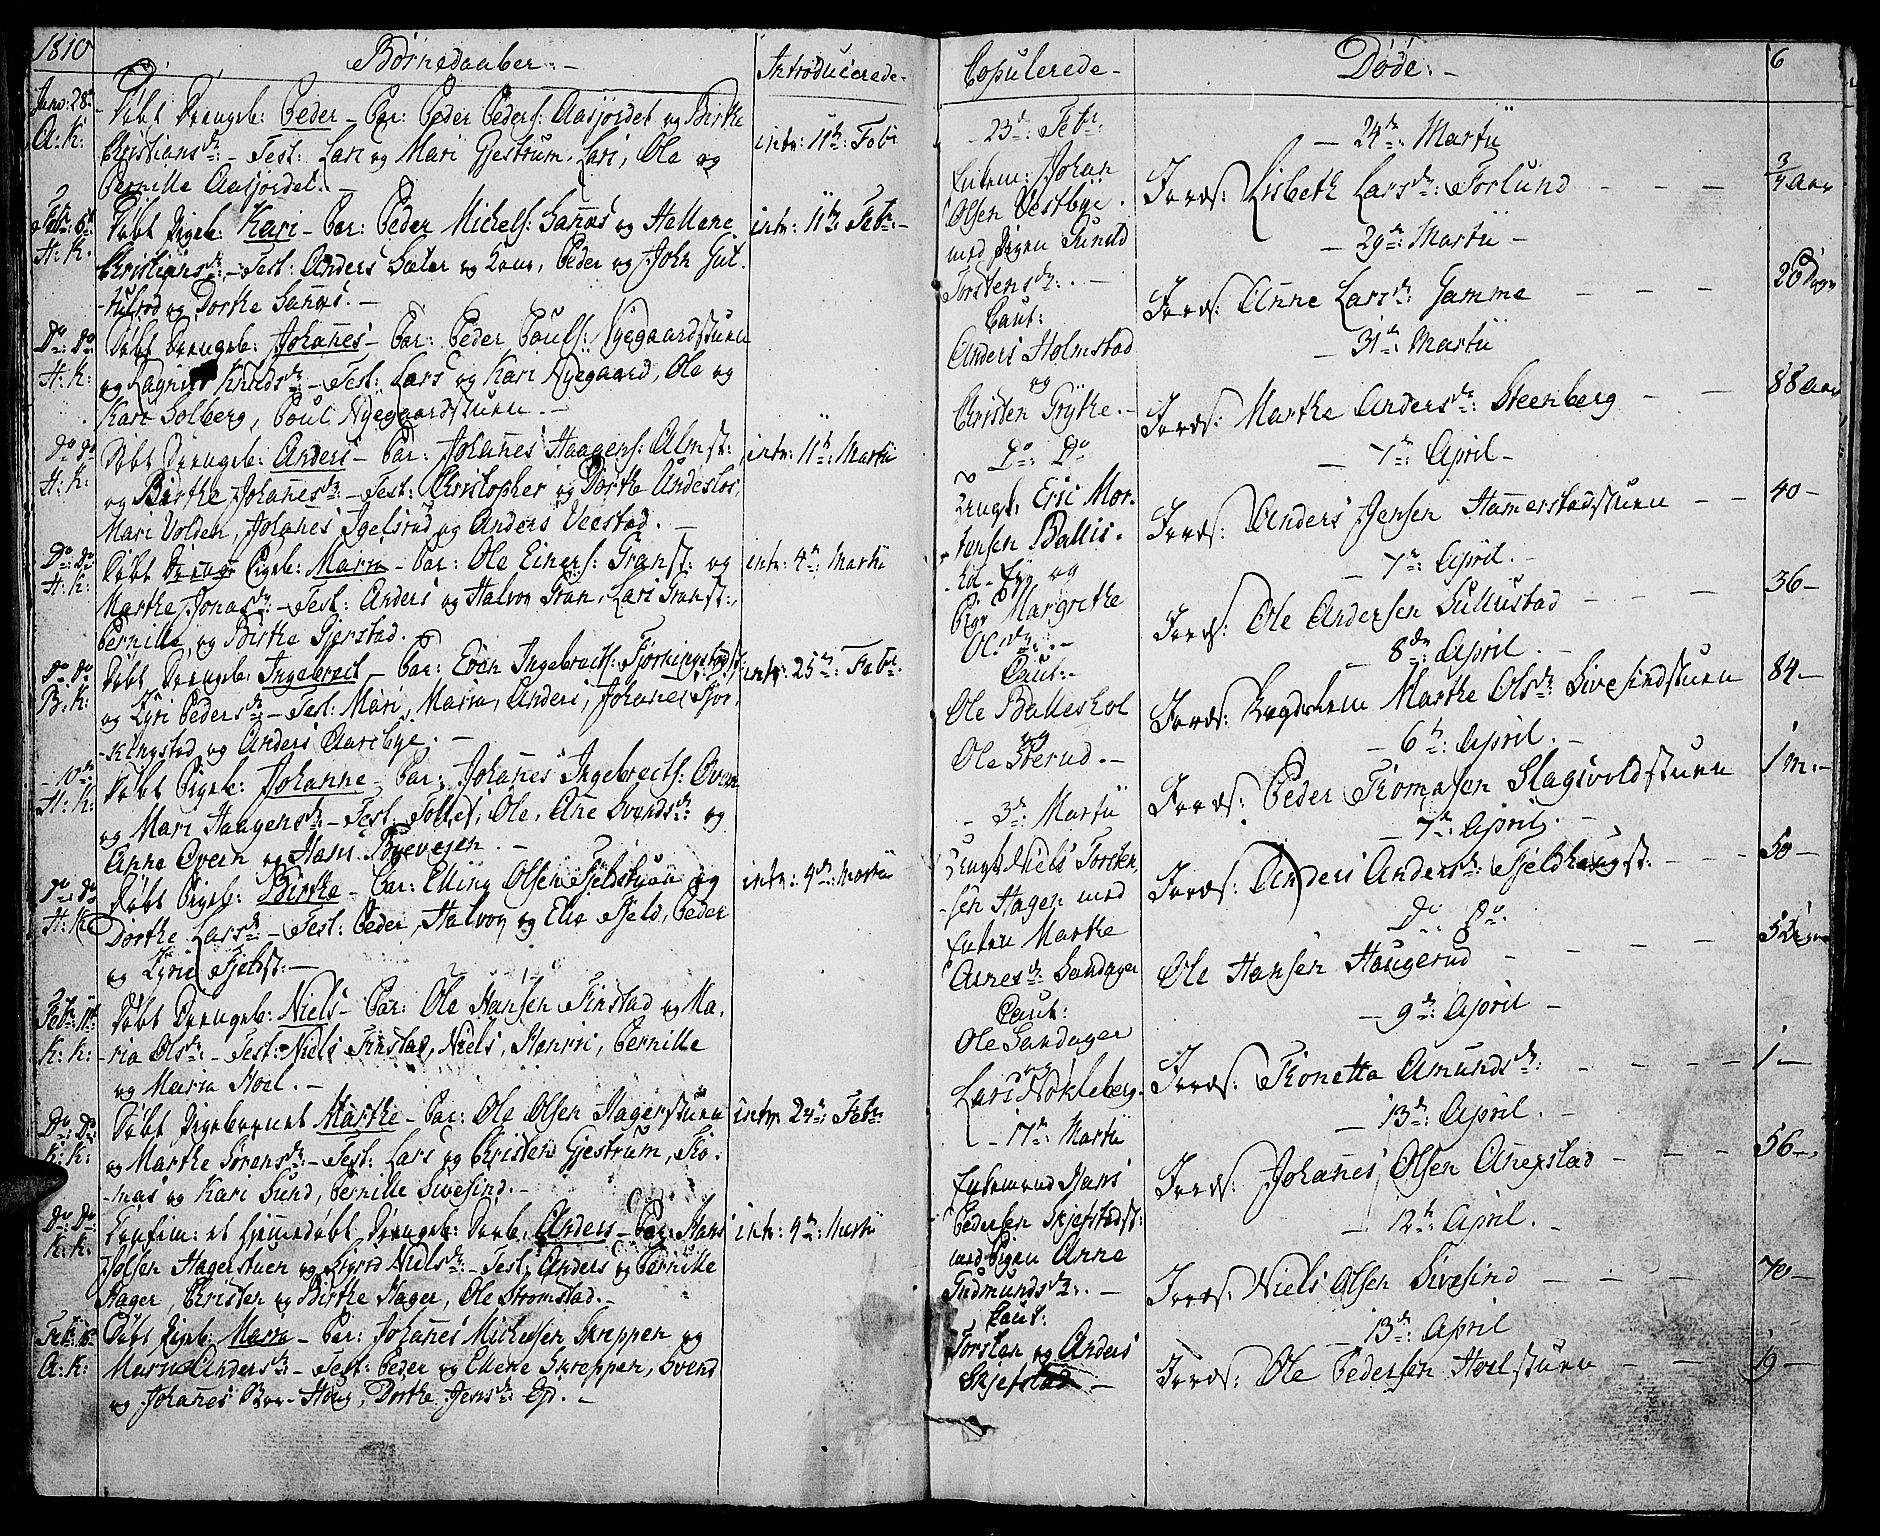 1810
Børnedaaber. -
Introducerede -
Janv: 28de
A: K:
Døbt Drengeb: Peder - Par: Peder Peders: Aasjordet og Birthe
Christiansdr: - Test: Lars og Mari Gjestrum, Lars, Ole og
Pernille Aasjordet. -
intr: 11te: Febr
Febr: 6te
H: K:
Døbt Pigeb: Kari - Par: Peder Michels: Sannes og Hellene
Christiansdr: - Test: Anders Sæter og Kone, Peder og John Gul-
-tulsrud og Dorthe Sannes. -
intr: 11te: Febr: -
Do: Do
H: K:
Døbt Drengeb: Johannes - Par: Peder Pouls: Nyegaardstuen
og Knudsdr: - Test: Lars og Kari Nyegaard, Ole og
Kari Solberg, Poul Nyegaardstuen -
Do Do
H: K:
Døbt Drengeb: Anders - Par: Johannes Haagens: Almst:
og Birthe Johannesdr: - Test: Christopher og Dorthe Undeslos,
Mari Volden, Johanes Igelsrud og Anders Veestad. -
intr: 11te: Martii
Do: Do
H: K:
Døbt Drenge Pigeb: Maria - Par: Ole Einers: Granst: og
Marthe Jonasdr: - Test: Anders og Halvor Gran, Lars Granst:,
Pernille og Birthe Gjerstad.
intr: 4de: Martii
Do Do
B: K:
Døbt Drengeb: Ingebrect - Par: Even Ingebrects: Fjorkingstadst:
og Kyri Pedersdr - Test: Mari, Maria, Anders, Johanes Fjor-
-kingstad og Anders Aarebye. -
intr: 25de: Febr.
- 10de
H: K:
Døbt Pigeb: Johanne - Par: Johanes Ingebrects: Oven
og Mari Haagensdr: - Test: Tollef, Ole, Ane Svendsdr: og
Anne Oveen og Hans Byevejen. -
Do: Do
H: K:
Døbt Pigeb: Birthe - Par: Elling Olsen Fjeldstuen og
Dorthe Larsdr: - Test: Peder, Halvor og Elie Fjeld, Peder
og Kyrie Fjeldst: -
intr: 4de: Martii
Febr: 11te
K: K:
Døbt Drengeb: Niels - Par: Ole Hansen Finstad og Ma-
-ria Olsdr: - Test: Niels Finstad, Niels, Henric, Pernille
og Maria Hoel. -
Do: Do:
K: K:
Døbt Pigebarnet Marthe - Par: Ole Olsen Hagerstuen
og Marthe Sørensdr: - Test: Lars og Christen Gjestrum, Tho-
-mas og Kari Sund, Pernille Sivesind. -
intr: 24de: Febr
Do: Do
K: K:
Confirm: et hjemmedøbt Drengeb: Anders - Par: Hans
Jolsen Hagerstuen og Sigrid Nielsdr: - Test: Anders og Pernille
Hager, Christen og Birthe Hager, Ole Stromstad. -
intr: 4de: Martii
Febr:
A: K:
Døbt Pigeb: Maria - Par: Johannes Michelsen Skreppen og
Maria Andersdr: - Test: Peder og Ellene Skreppen, Svend
og Johannes Hong, Dorthe Jensdr: Eg. -
Copulerede -
- 23de: Febr:
Enkem: Johan
Olsen Vestbye.
med Pigen Gunild
Torstensdr: . -
Caut:
Anders Holmstad
og
Christen Grythe. -
Do: Do
Ungk: Eric Mor-
tensen Ballis-
og
Pige Margrethe
Olsdr: . -
Caut: -
Ole Balleshol
og
Ole Sterud. -
- 3de: Martii
Ungk: Niels Torsten-
-sen Hagen med
Enken Marthe
Arnesdr: Sandager
Caut:
Ole Sandager
og
Lars Nokleberg.
- 17de: Martii
Enkemand Hans
Pedersen Skjefstadst:
med Pigen Anne
Gudmundsdr: . -
Caut:
Torsten og Anders
Skjefstad -
Døde: -
6
- 24de Martii
Jords: Lisbeth Larsdr: Forlund - - - 3/4 Aar
- 29de: Martii -
Jords: Anne Larsdr: Gamme - - - 26 Dage
- 31te: Martii
Jords: Marthe Andersdr: Steenberg - - 88 Aar
- 7de: April -
Jords: Anders Jensen Hammerstadstuen - - 40 -
- 7de: April. -
Jords: Ole Andersen Sullustad - - - 36 -
- 8de: April. -
Jords: Marthe Olsdr: Sivesindstuen 84. -
- 6te: April. -
Jords: Peder Thomasen Slagsvoldstuen 1 m: -
- 7de: April. -
Jords: Anders Andersdr: Fjeldhaugst: - - - 50 -
Do: Do.
Ole Hansen Haugerud - - - - 5 Dage
- 9de: April -
Jords: Thonetta Amundsdr: - - - - 1 -
- 13de: April. -
Jords: Johannes Olsen Anexstad - - - 56 -
- 12te: April. -
Jords: Niels Olsen Sivesind - - - - 70 -
- 13de: April
Jords: Ole Pedersen Hoelstuen - - 19 -